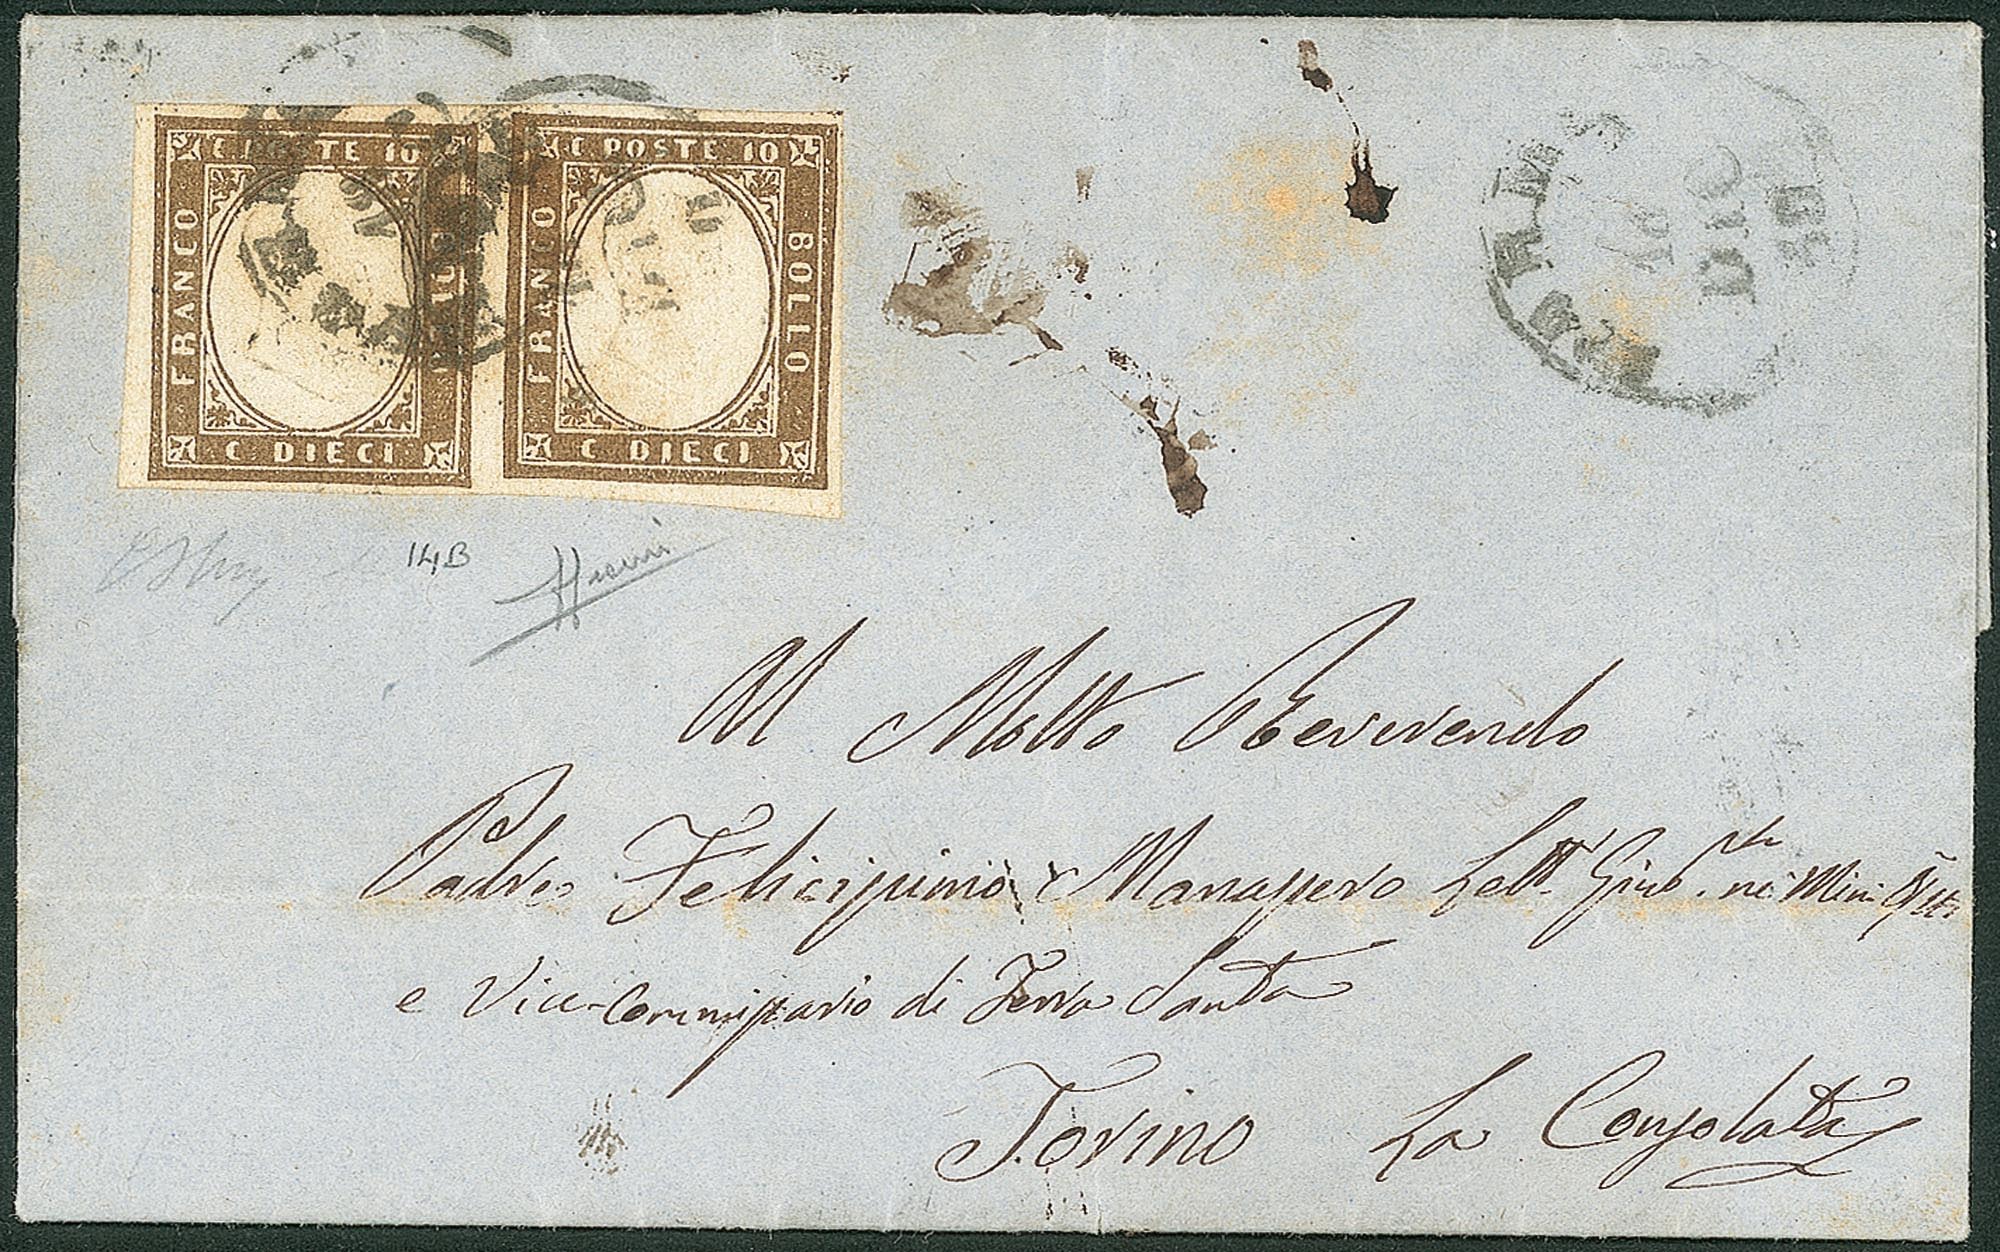 C. POSTE 10
FRANCO
BOLLO
C. DIECI
C POSTE 10
FRANCO
BOLLO
C DIECI
DIC
14B
Al Molto Reverendo
Padre Felicissimo Manassero Lett. Giub. ne' Min.
e Vice-Commissario di Terra Santa
Torino La Consolata